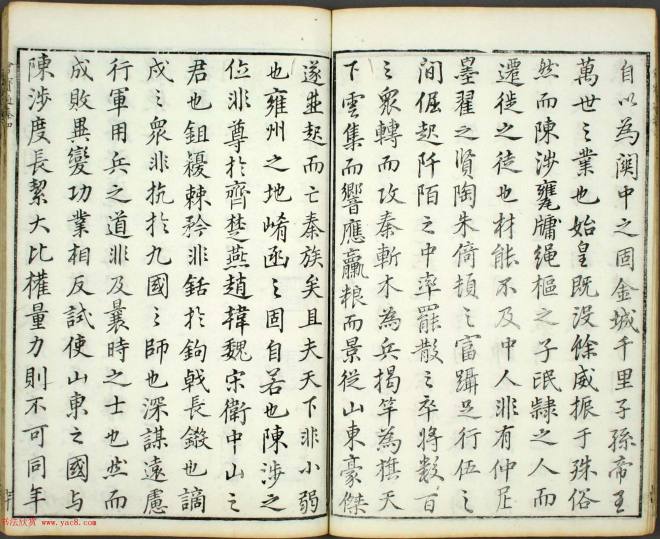 自以為関中之固金城千里子孫帝王
萬世之業也始皇既没餘威振于殊俗
然而陳涉甕牖繩樞之子氓隸之人而
遷徙之徒也材能不及中人非有仲尼
墨翟之賢陶朱倚頓之富躡足行伍之
間倔起阡陌之中率罷散之卒將數百
之衆轉而攻秦斬木為兵揭竿為旗天
下雲集而響應贏粮而景從山東豪傑
遂並起而亡秦族矣且夫天下非小弱
也雍州之地崤函之固自若也陳涉之
位非尊於齊楚燕趙韓魏宋衛中山之
君也鉏櫌棘矜非銛於鉤戟長鎩也謫
戍之衆非抗於九國之師也深謀遠慮
行軍用兵之道非及曩時之士也然而
成敗異變功業相反試使山東之國與
陳涉度長絜大比權量力則不可同年
书法欣赏 www.yac8.com